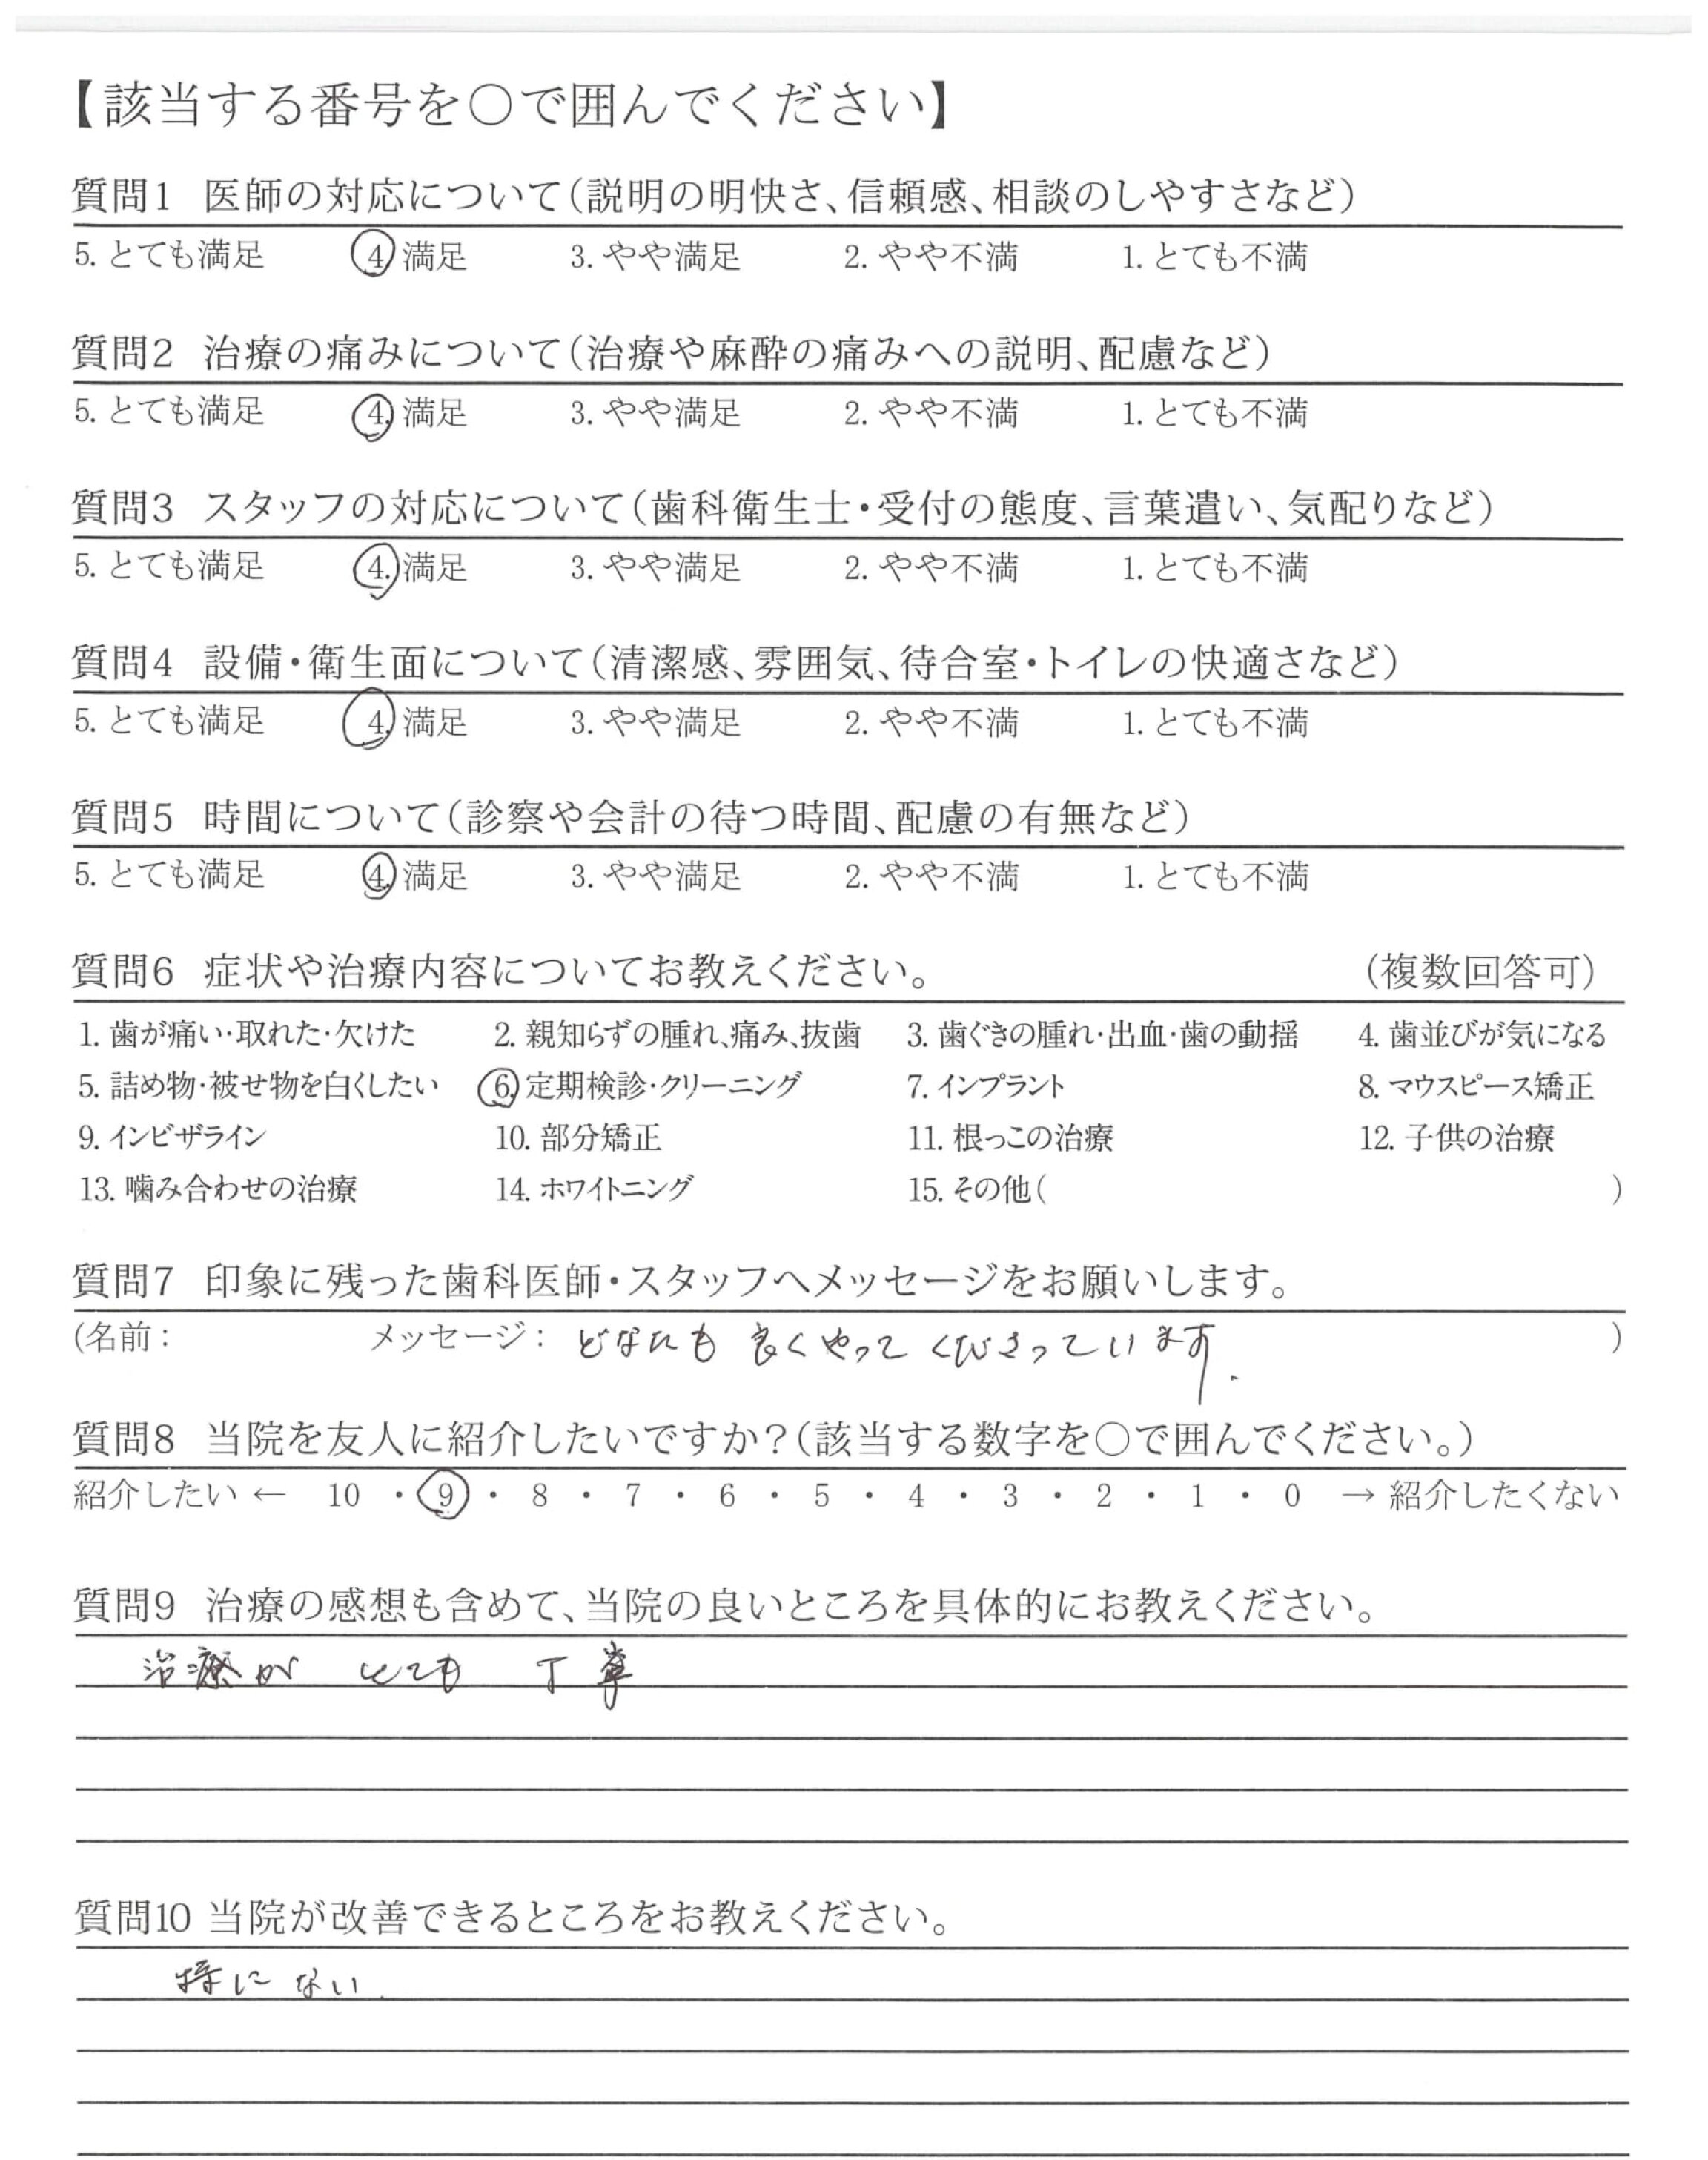 【該当する番号を○で囲んでください】
質問1 医師の対応について(説明の明快さ、信頼感、相談のしやすさなど)
5. とても満足 4. 満足 3. やや満足 2. やや不満 1. とても不満
質問2 治療の痛みについて(治療や麻酔の痛みへの説明、配慮など)
5. とても満足 4. 満足 3. やや満足 2. やや不満 1. とても不満
質問3 スタッフの対応について(歯科衛生士・受付の態度、言葉遣い、気配りなど)
5. とても満足 4. 満足 3. やや満足 2. やや不満 1. とても不満
質問4 設備・衛生面について(清潔感、雰囲気、待合室・トイレの快適さなど)
5. とても満足 4. 満足 3. やや満足 2. やや不満 1. とても不満
質問5 時間について(診察や会計の待つ時間、配慮の有無など)
5. とても満足 4. 満足 3. やや満足 2. やや不満 1. とても不満
質問6 症状や治療内容についてお教えください。 (複数回答可)
1. 歯が痛い・取れた・欠けた 2. 親知らずの腫れ、痛み、抜歯 3. 歯ぐきの腫れ・出血・歯の動揺 4. 歯並びが気になる
5. 詰め物・被せ物を白くしたい 6. 定期検診・クリーニング 7. インプラント 8. マウスピース矯正
9. インビザライン 10. 部分矯正 11. 根っこの治療 12. 子供の治療
13. 噛み合わせの治療 14. ホワイトニング 15. その他( )
質問7 印象に残った歯科医師・スタッフへメッセージをお願いします。
(名前: メッセージ: どなたも 良くやって くださっています. )
質問8 当院を友人に紹介したいですか?(該当する数字を○で囲んでください。)
紹介したい ← 10 ・ 9 ・ 8 ・ 7 ・ 6 ・ 5 ・ 4 ・ 3 ・ 2 ・ 1 ・ 0 → 紹介したくない
質問9 治療の感想も含めて、当院の良いところを具体的にお教えください。
治療が とても 丁寧
質問10 当院が改善できるところをお教えください。
特に ない.